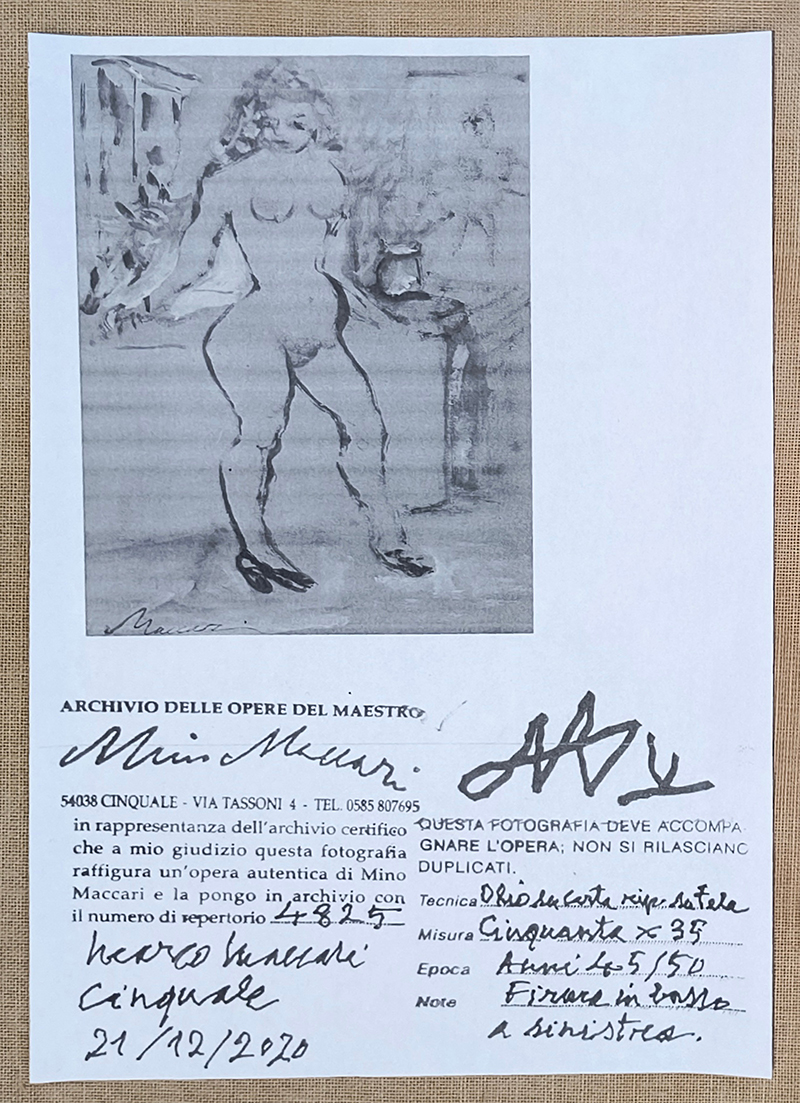 Maccari
ARCHIVIO DELLE OPERE DEL MAESTRO
Mino Maccari
54038 CINQUALE - VIA TASSONI 4 - TEL. 0585 807695
in rappresentanza dell'archivio certifico
che a mio giudizio questa fotografia
raffigura un'opera autentica di Mino
Maccari e la pongo in archivio con
il numero di repertorio 4825
Marco Maccari
Cinquale
21/12/2020
QUESTA FOTOGRAFIA DEVE ACCOMPA-
GNARE L'OPERA; NON SI RILASCIANO
DUPLICATI.
Tecnica Olio su carta rip. su tela
Misura Cinquanta x 35
Epoca Anni 45/50
Note Firma in basso
a sinistra.